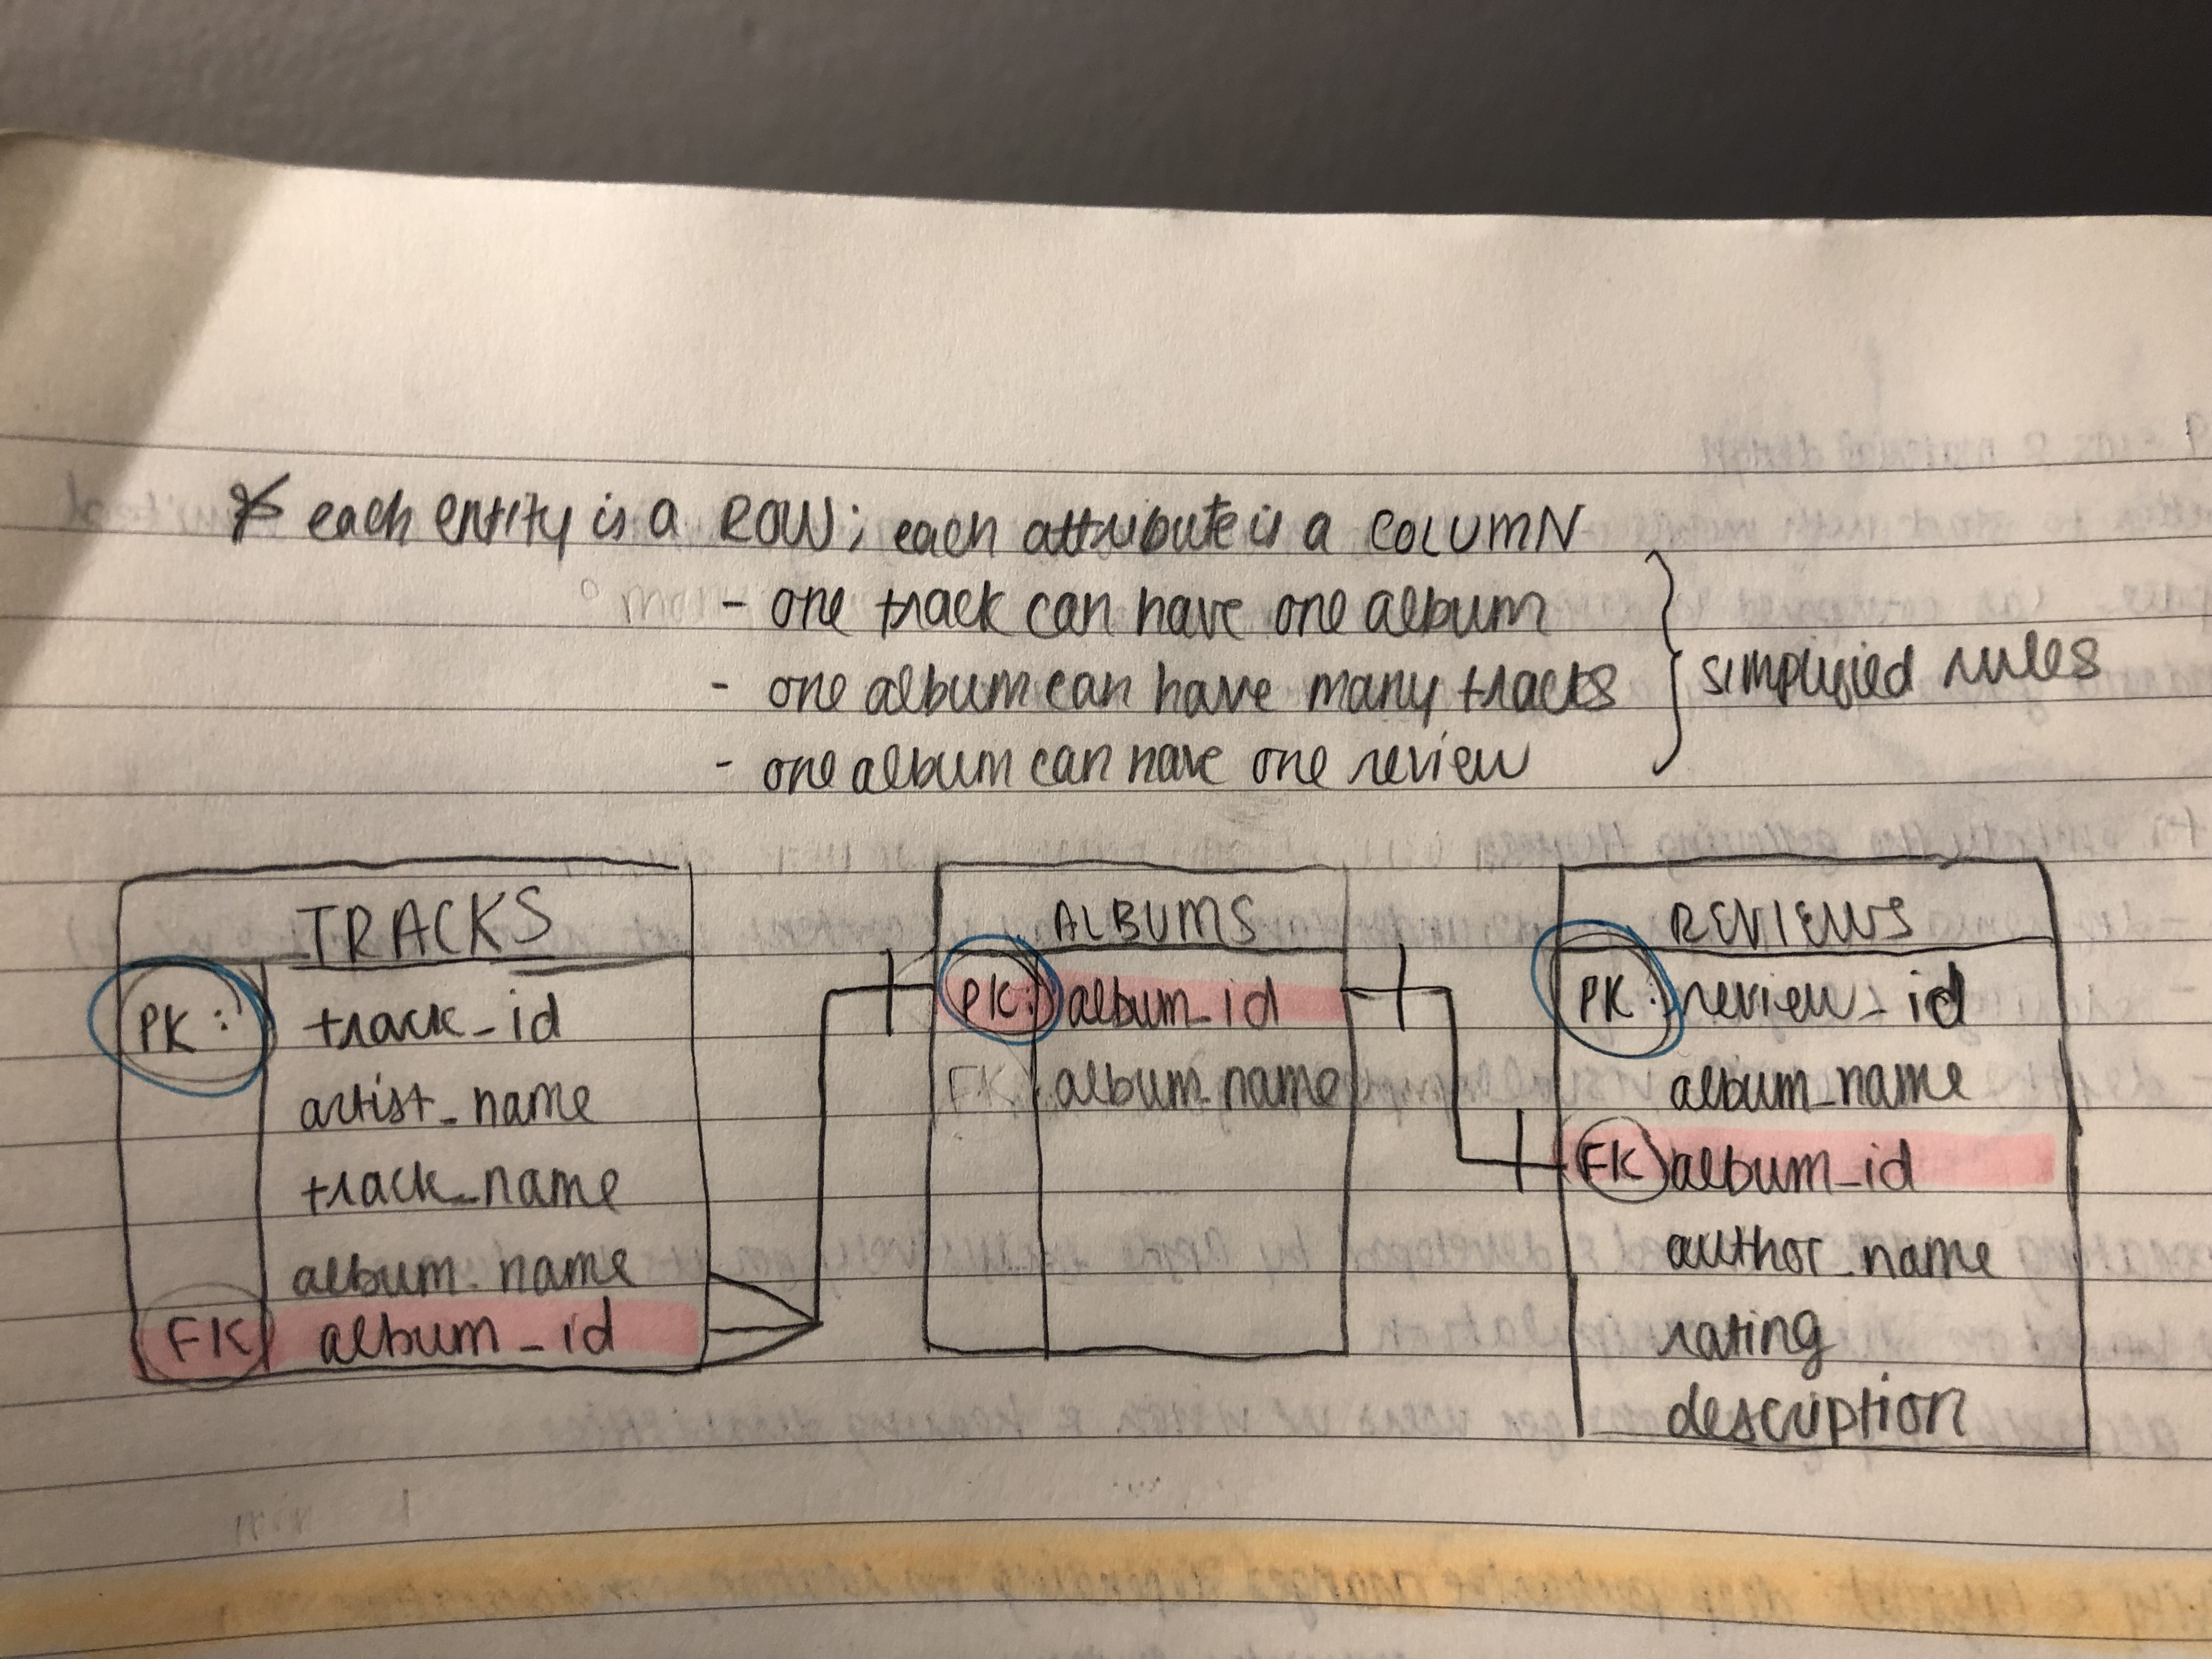 * each entity is a ROW; each attribute is a COLUMN
- one track can have one album
- one album can have many tracks
- one album can have one review
simplified rules
TRACKS
PK: track_id
artist_name
track_name
album_name
FK album_id
ALBUMS
PK: album_id
FK: album_name
REVIEWS
PK: review_id
album_name
FK album_id
author_name
rating
description